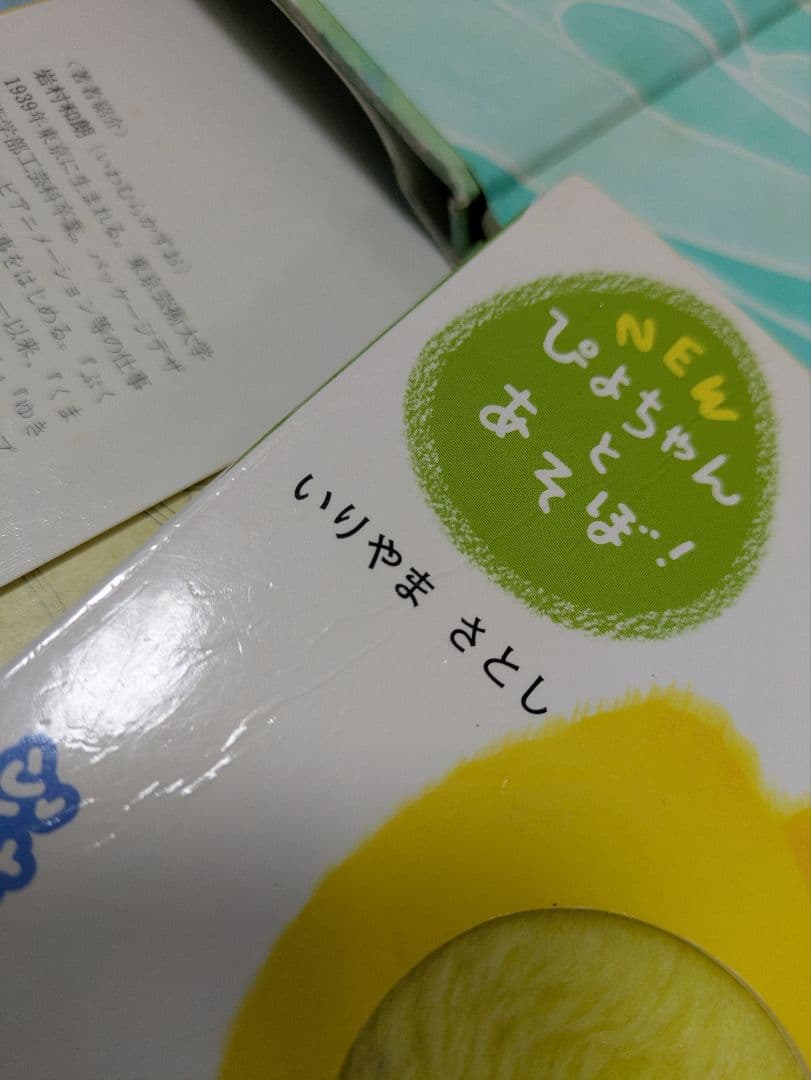 〈著者紹介〉
岩村和朗（いわむらかずお）
1939年東京に生まれる。東京芸術大学
学部工芸科卒業。パッケージデザ
ビアニメーション等の仕事
事をはじめる。『ぷく
ー以来、『くま
『ゆき
NEW
ぴよちゃん
と
あそぼ!
いりやま さとし